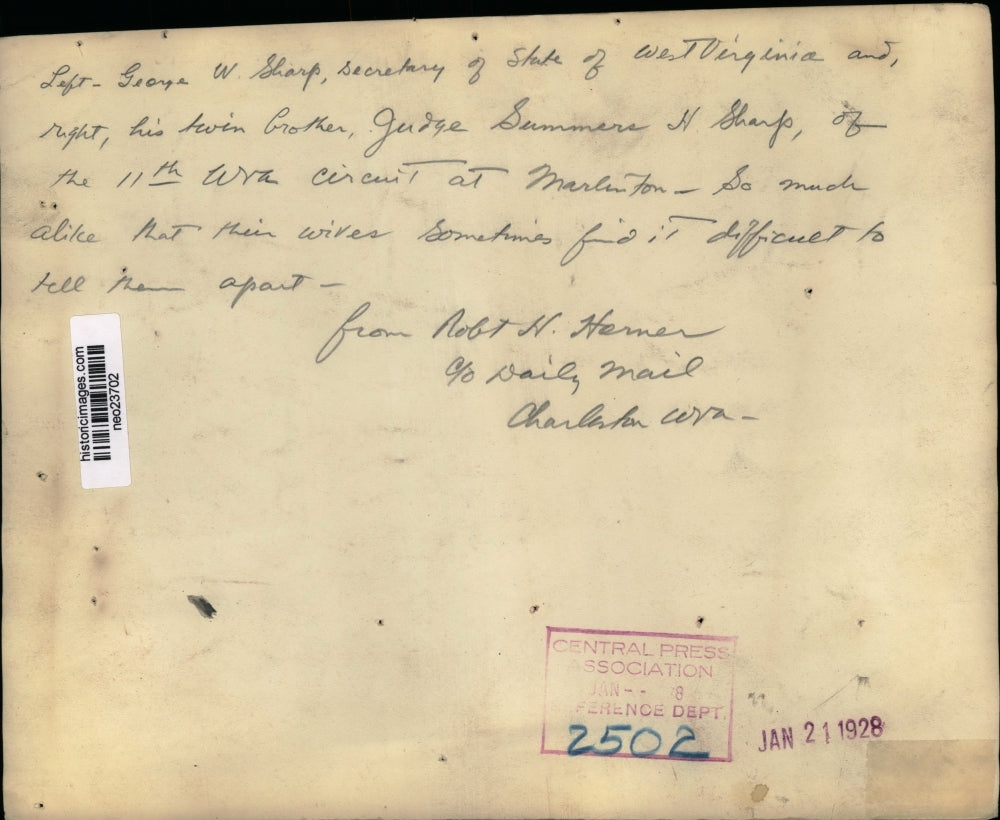 Left - George W. Sharp, Secretary of State of West Virginia and,
right, his twin brother, Judge Summers H Sharp, of
the 11th WVa circuit at Marlinton - So much
alike that their wives sometimes find it difficult to
tell them apart -
from Robt H. Horner
c/o Daily Mail
Charleston WVa -
historicimages.com
neo23702
CENTRAL PRESS
ASSOCIATION
JAN - - 8
FERENCE DEPT.
2502
JAN 21 1928